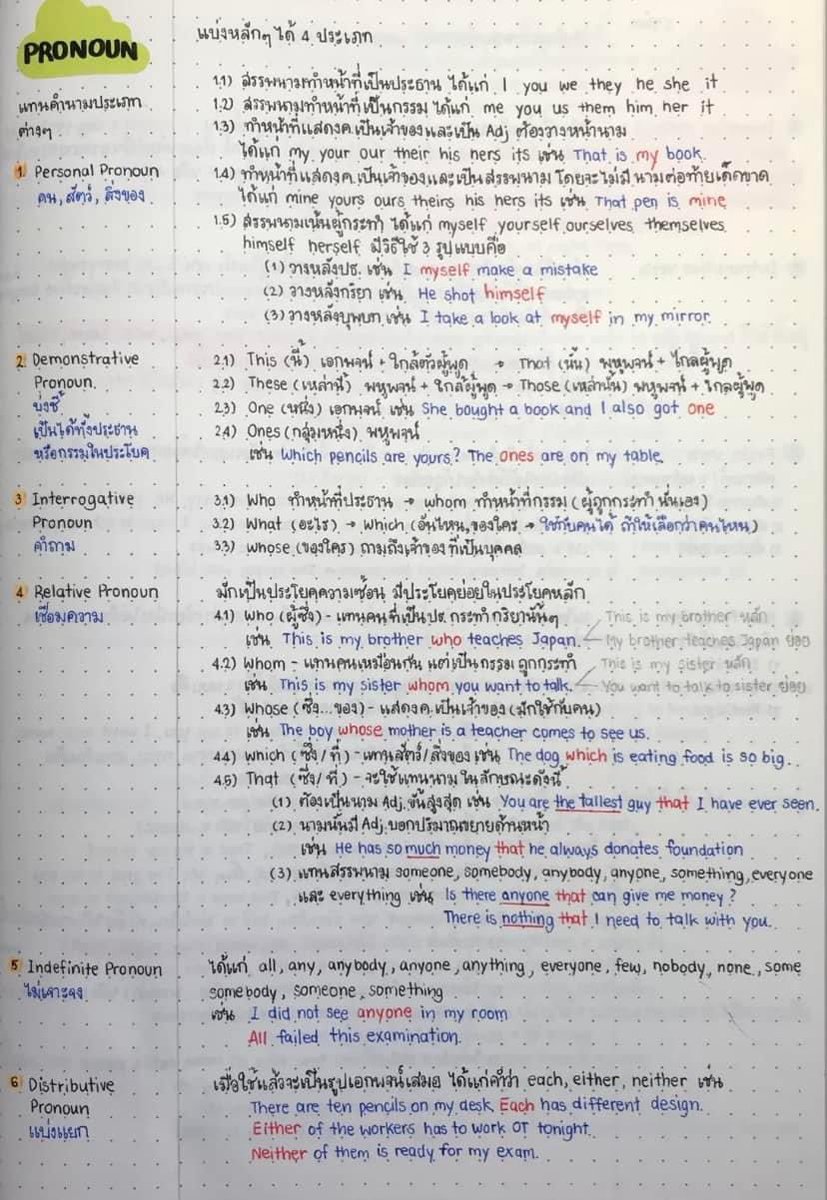 PRONOUN
แบ่งหลักๆ ได้ 4 ประเภท
แทนคำนามประเภท
ต่างๆ
1. Personal Pronoun
คน, สัตว์, สิ่งของ
1.1) สรรพนามทำหน้าที่เป็นประธาน ได้แก่ I you we they he she it
1.2) สรรพนามทำหน้าที่เป็นกรรม ได้แก่ me you us them him her it
1.3) ทำหน้าที่แสดงค.เป็นเจ้าของและเป็น Adj ต้องวางหน้านาม
ได้แก่ my your our their his hers its เช่น That is my book.
1.4) ทำหน้าที่แสดงค.เป็นเจ้าของและเป็นสรรพนาม โดยจะไม่มีนามต่อท้ายเด็ดขาด
ได้แก่ mine yours ours theirs his hers its เช่น That pen is mine
1.5) สรรพนามเน้นผู้กระทำ ได้แก่ myself yourself ourselves themselves
himself herself มีวิธีใช้ 3 รูปแบบคือ
(1) วางหลังปธ. เช่น I myself make a mistake
(2) วางหลังกริยา เช่น He shot himself
(3) วางหลังบุพบท เช่น I take a look at myself in my mirror.
2. Demonstrative
Pronoun.
บ่งชี้
เป็นได้ทั้งประธาน
หรือกรรมในประโยค
2.1) This (นี้) เอกพจน์ + ใกล้ตัวผู้พูด → That (นั้น) พหูพจน์ + ไกลผู้พูด
2.2) These (เหล่านี้) พหูพจน์ + ใกล้ผู้พูด → Those (เหล่านั้น) พหูพจน์ + ไกลผู้พูด
2.3) One (หนึ่ง) เอกพจน์ เช่น She bought a book and I also got one
2.4) Ones (กลุ่มหนึ่ง) พหูพจน์
เช่น Which pencils are yours? The ones are on my table.
3 Interrogative
Pronoun
คำถาม
3.1) Who ทำหน้าที่ประธาน → whom ทำหน้าที่กรรม (ผู้ถูกกระทำ นั่นเอง)
3.2) What (อะไร) → which (อันไหน, ของใคร → ใช้กับคนได้ ถ้าให้เลือกว่าคนไหน)
3.3) whose (ของใคร) ถามถึงเจ้าของที่เป็นบุคคล
4 Relative Pronoun
เชื่อมความ
มักเป็นประโยคความซ้อน มีประโยคย่อยในประโยคหลัก
4.1) Who (ผู้ซึ่ง) - แทนคนที่เป็นปธ. กระทำกริยานั้นๆ
เช่น This is my brother who teaches Japan.
This is my brother หลัก
My brother teaches Japan ย่อย
4.2) Whom - แทนคนเหมือนกัน แต่เป็นกรรม ถูกกระทำ
เช่น This is my sister whom you want to talk.
This is my sister หลัก
You want to talk to sister ย่อย
4.3) Whose (ซึ่ง...ของ) - แสดงค.เป็นเจ้าของ (มักใช้กับคน)
เช่น The boy whose mother is a teacher comes to see us.
4.4) which (ซึ่ง/ที่) - แทนสัตว์/สิ่งของ เช่น The dog which is eating food is so big.
4.5) That (ซึ่ง/ที่) - จะใช้แทนนามในลักษณะดังนี้
(1) ต้องเป็นนาม Adj. ขั้นสูงสุด เช่น You are the tallest guy that I have ever seen.
(2) นามนั้นมี Adj. บอกปริมาณขยายด้านหน้า
เช่น He has so much money that he always donates foundation
(3) แทนสรรพนาม someone, somebody, anybody, anyone, something, everyone
และ everything เช่น Is there anyone that can give me money?
There is nothing that I need to talk with you.
5 Indefinite Pronoun
ไม่เจาะจง
ได้แก่ all, any, anybody, anyone, anything, everyone, few, nobody, none, some
somebody, someone, something
เช่น I did not see anyone in my room
All failed this examination.
6 Distributive
Pronoun
แบ่งแยก
เมื่อใช้แล้วจะเป็นรูปเอกพจน์เสมอ ได้แก่คำว่า each, either, neither เช่น
There are ten pencils on my desk. Each has different design.
Either of the workers has to work OT tonight.
Neither of them is ready for my exam.